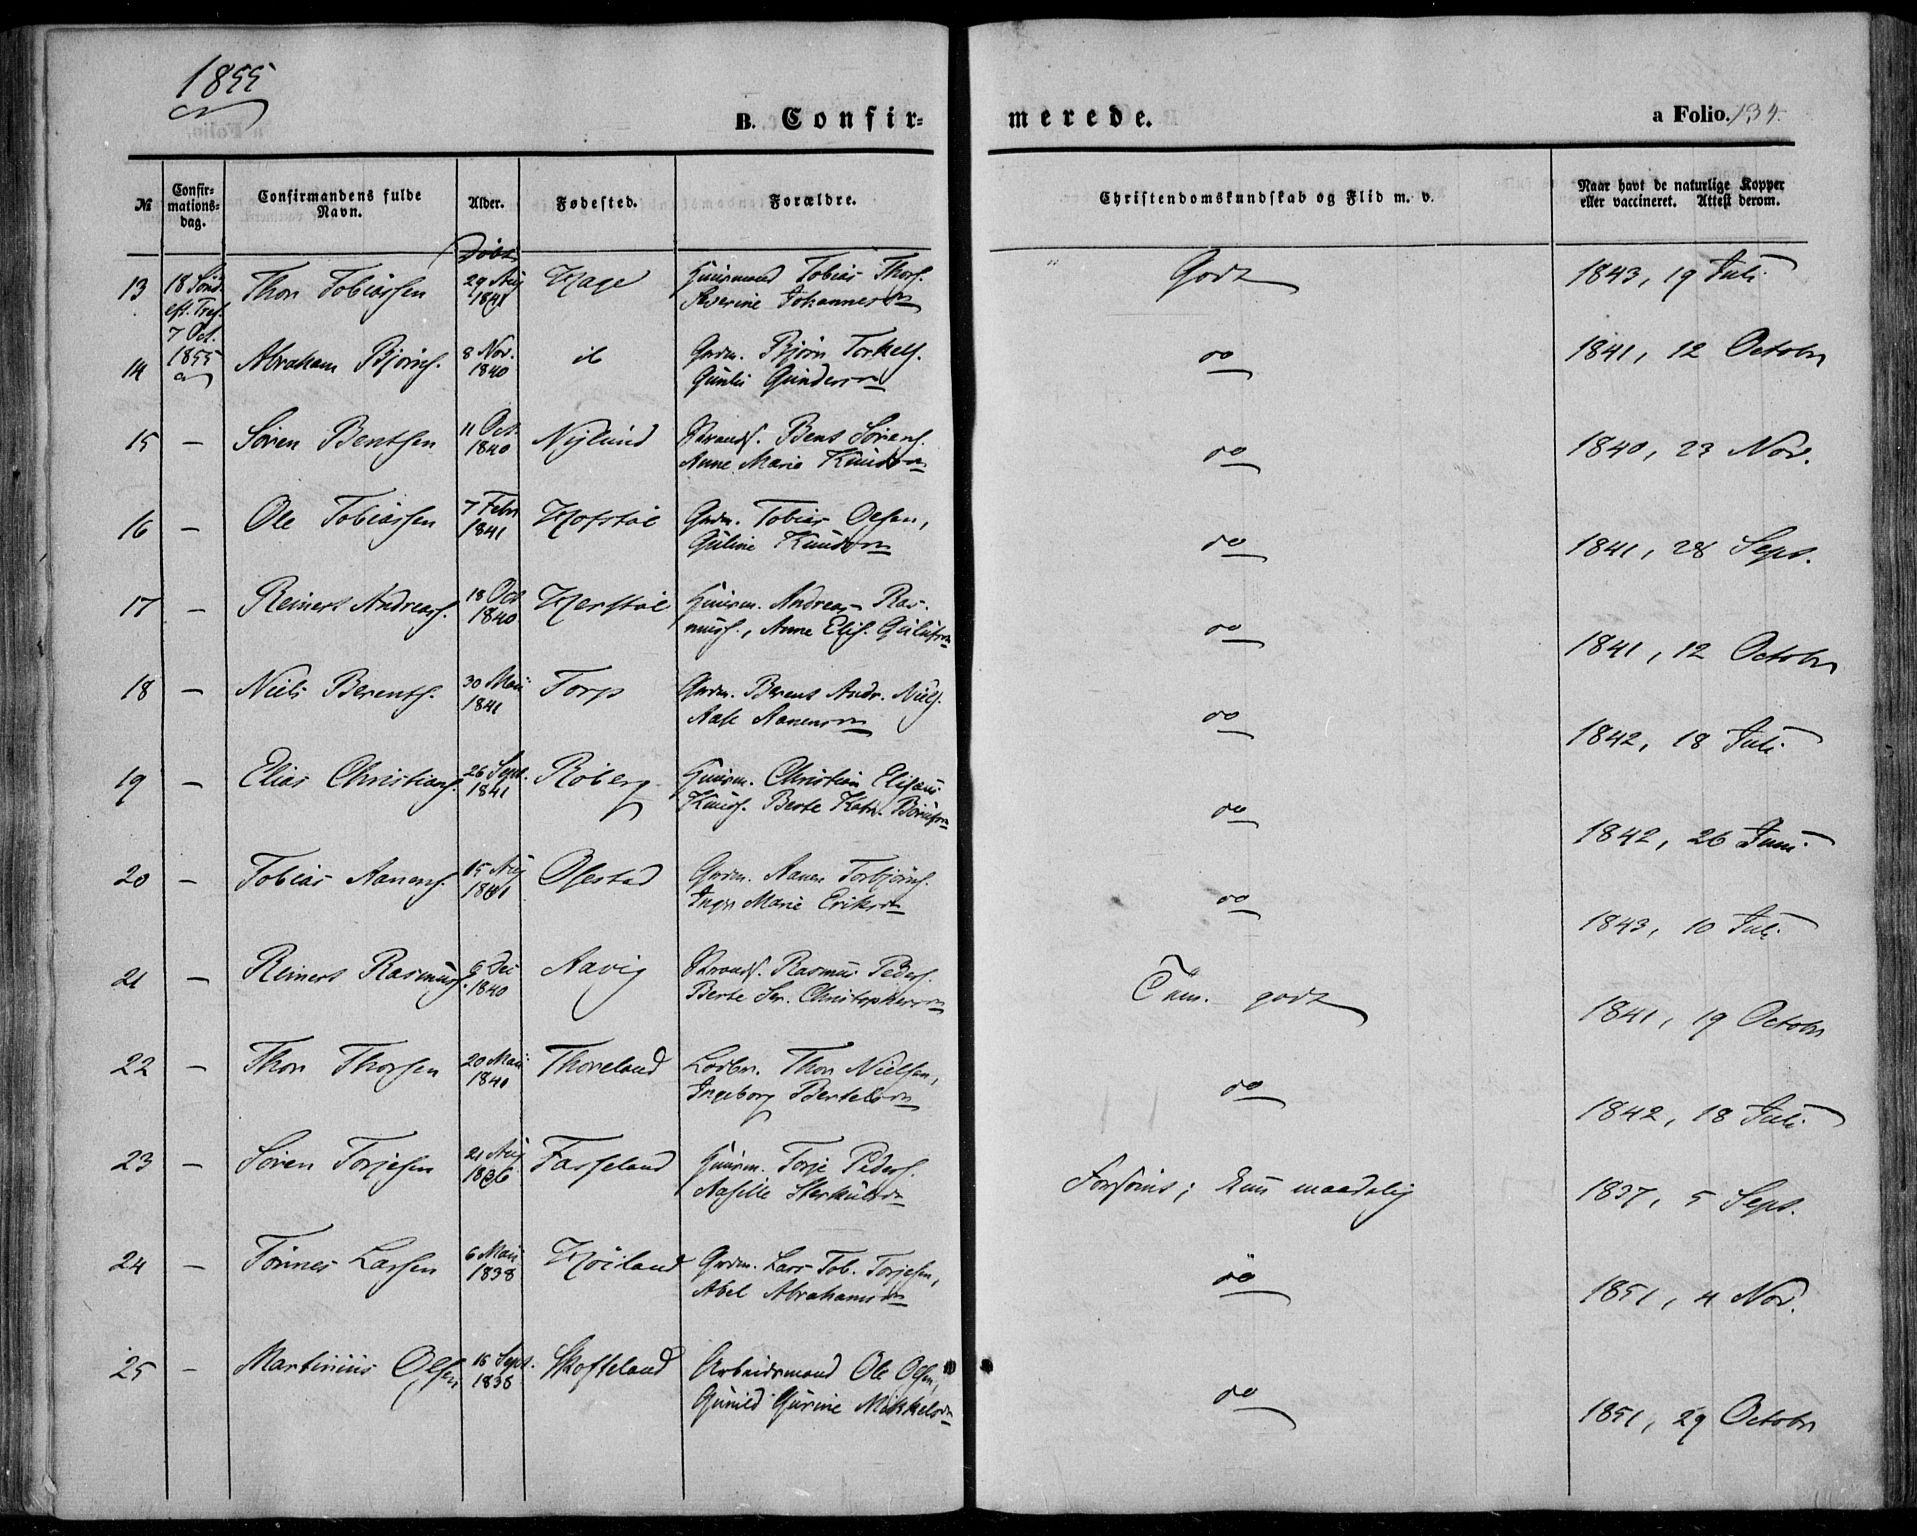 1855
B. Confirmerede.
a Folio. 134.
№
Confirmations-dag.
Confirmandens fulde Navn.
Alder.
Fødested.
Forældre.
Christendomskundskab og Flid m. v.
Naar havt de naturlige Kopper eller vaccineret. Attest derom.
Døbt
13 18 Sønd. eft. Tref. 7 Oct. 1855 Thor Tobiassen 29 Aug 1841 Hage Huusmand Tobias Thors.
Severine Johannesdr Godt 1843, 19 Juli
14 Abraham Bjørns. 8 Nov. 1840 ib Grdm. Bjørn Torkels.
Gunder 1841, 12 Octobr
do
15 — Søren Bentsen 11 Oct. 1840 Nylund Strands. Bent Sørens.
Anne Marie Knudsdr do 1840, 23 Nov.
16 — Ole Tobiassen 7 Febr 1841 Grdm. Tobias Olsen,
Guline Knudsdr do 1841, 28 Sept.
17 — Reinert Andreas. 18 Oct 1840 Huusm. Andreas Ras-
mus., Anne Elis. do 1841, 12 Octobr
18 — Niels Berents. 30 Mai 1841 Torp Grdm. Berent Andr. Niels.
Aanensdr do 1842, 18 Juli
19 — Elias Christians. 26 Sept. 1841 Røberg Huusm. Christian Elisæus
Knuds. Berte Katr. do 1842, 26 Juni
20 — Tobias Aanens. 15 Aug 1841 Ofestad Grdm. Aanen Torbjørns.
Inger Marie Eriksdr do 1843, 10 Juli
21 — Reinert Rasmus. 9 Dec 1840 Aavig Strands. Rasmus Peders.
Berte Ser. Christophersdr Tem. godt 1841, 19 Octobr
22 — Thor Thorsen 20 Mai 1840 Thoreland Thor Nielsen,
Ingeborg Bertelsdr do 1842, 18 Juli
23 — Søren Torjesen 21 Aug 1836 Fasseland Huusm. Torje Peders.
Forsøms; kun maadelig 1837, 5 Sept.
24 — Tønnes Larsen 6 Mai 1838 Høiland Grdm. Lars Tob. Torjesen,
Abel Abrahamsdr do 1851, 4 Nov.
25 — Martinius Olsen 16 Sept. 1838 Skofteland Arbeidsmand Ole Olsen,
Gunild Gurine Mikkelsdr do 1851, 29 Octobr